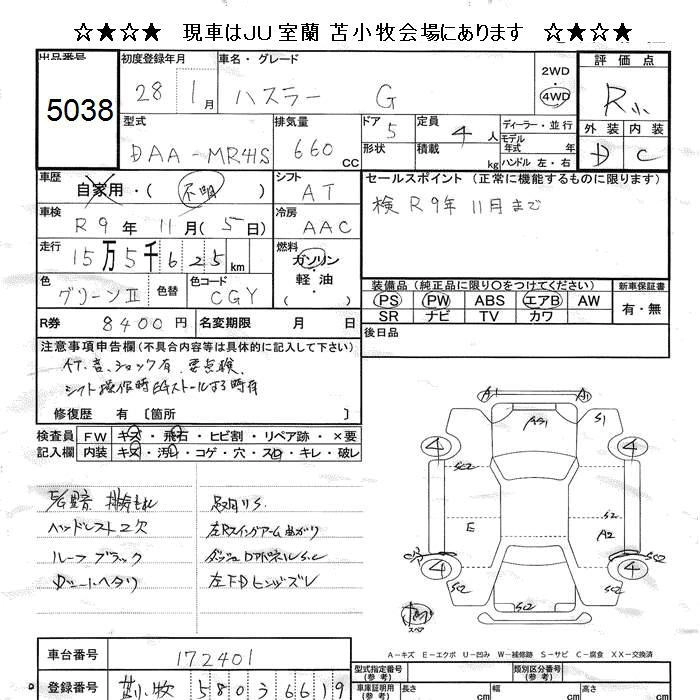 ☆★☆★ 現車はJU室蘭 苫小牧会場にあります ☆★☆★
出品番号
5038
初度登録年月
28 1月
車名・グレード
ハスラー G
2WD
4WD
評価点
R小
外装 内装
D C
型式
DAA-MR41S
排気量
660 CC
ドア 5
形状
定員 4人
積載 kg
ディーラー・並行
モデル
年式 年
ハンドル 左・右
車歴
自家用・( 不明 )
シフト
AT
セールスポイント (正常に機能するものに限ります)
検R9年11月まで
車検
R9年11月(5日)
冷房
AAC
走行
15万5千625km
燃料
ガソリン・
軽油
( )
色
グリーンⅡ
色替
色コード
CGY
装備品 (純正品に限り〇をつけてください)
PS PW ABS エアB AW
SR ナビ TV カワ
新車保証書
有・無
R券 8400円
名変期限 月 日
後日品
注意事項申告欄(不具合内容等は具体的に記入して下さい)
AT、音、ショック有 要点検、
シフト操作時EGストールする時有
修復歴 有 〔箇所 〕
検査員
記入欄
FW キズ・飛石・ヒビ割・リペア跡・×要
内装 キズ・汚レ・コゲ・穴・スレ・キレ・破レ
E/G異音 排気もれ
ヘッドレスト2欠
左Rスイングアーム曲がり
ルーフブラック
ダッシュロアパネルS.C
左FDヒンジズレ
A1 A1
AS1 S1
4 4
SC2 SC2
E
S2
A2
4 4
SC2 SC2
SC2
スペア
A-キズ E-エクボ U-凹み W-補修跡 S-サビ C-腐食 XX-交換済
車台番号
172401
登録番号
苫小牧 580 3 6619
型式指定番号
(参考)
類別区分番号
(参考)
車庫証明用
(参考)
長さ cm
幅 cm
高さ cm